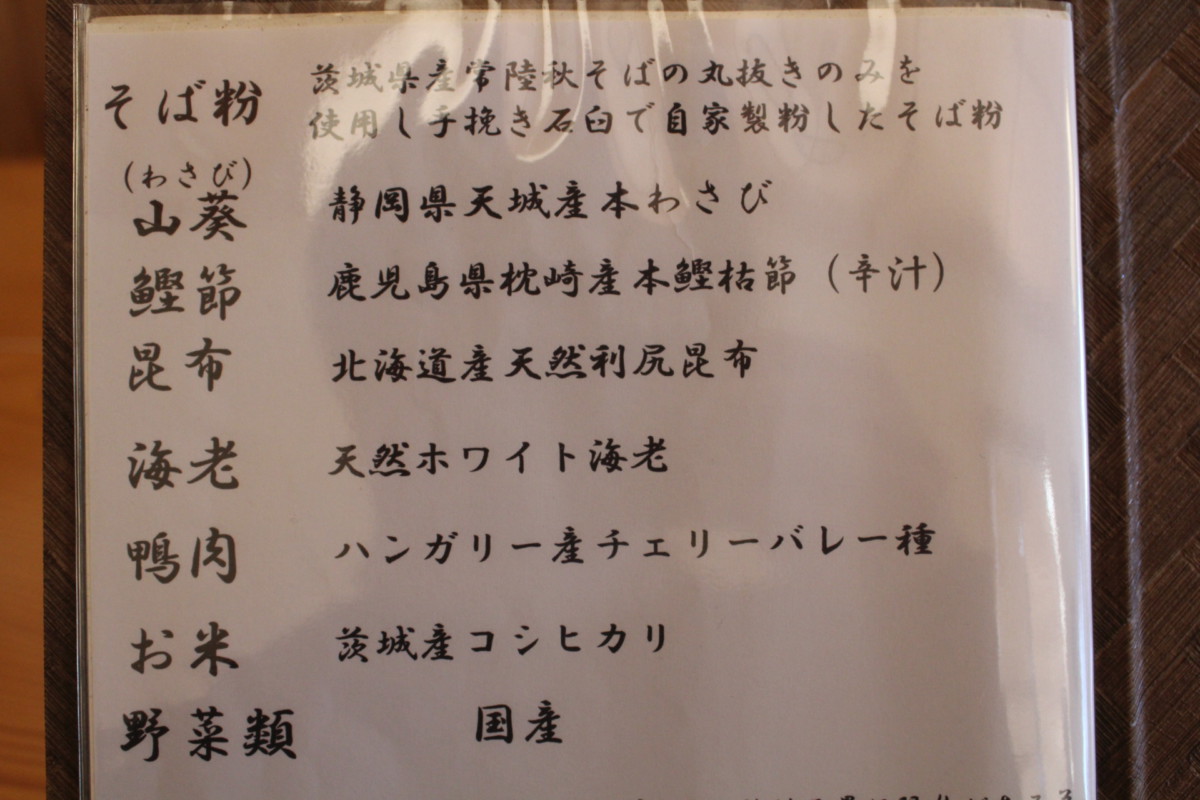 そば粉 茨城県産常陸秋そばの丸抜きのみを
使用し手挽き石臼で自家製粉したそば粉
(わさび)
山葵 静岡県天城産本わさび
鰹節 鹿児島県枕崎産本鰹枯節（辛汁）
昆布 北海道産天然利尻昆布
海老 天然ホワイト海老
鴨肉 ハンガリー産チェリーバレー種
お米 茨城産コシヒカリ
野菜類 国産